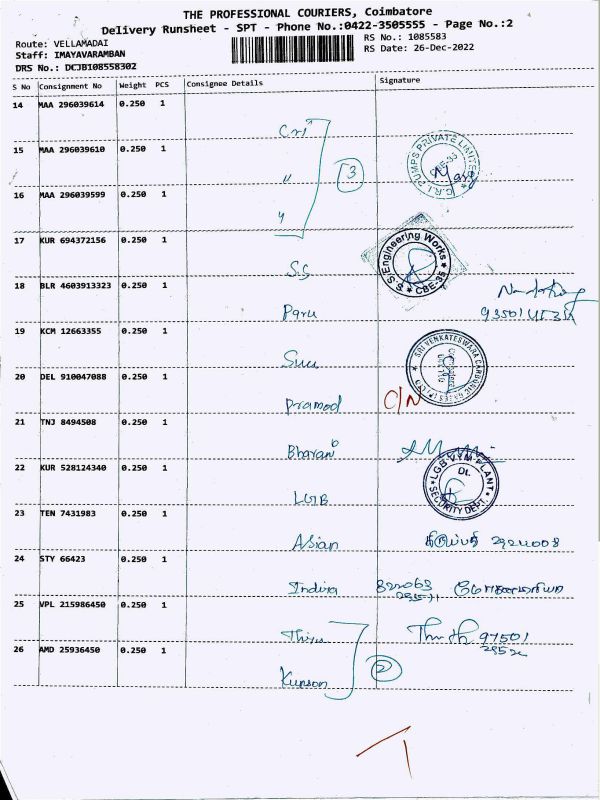 THE PROFESSIONAL COURIERS, Coimbatore
Delivery Runsheet - SPT - Phone No.:0422-3505555 - Page No.:2
Route: VELLAMADAI
RS No.: 1085583
Staff: IMAYAVARAMBAN
RS Date: 26-Dec-2022
DRS No.: DCJB108558302
S No Consignment No Weight PCS Consignee Details Signature
14 MAA 296039614 0.250 1
Cri
15 MAA 296039610 0.250 1
" 3
C.R.I. PUMPS PRIVATE LIMITED
CBE-35
16 MAA 296039599 0.250 1
"
17 KUR 694372156 0.250 1
S.S
S.S Engineering Works
CBE-35
18 BLR 4603913323 0.250 1
Paru
19 KCM 12663355 0.250 1
SRI VENKATESWARA CARBONIC GASES (P) LTD
20 DEL 910047088 0.250 1
Pramod C/N
21 TNJ 8494508 0.250 1
Bharani
22 KUR 528124340 0.250 1
LGB
LGB VYM PLANT
Dt.
SECURITY DEPT.
23 TEN 7431983 0.250 1
Asian
24 STY 66423 0.250 1
Indira
25 VPL 215986450 0.250 1
97501
26 AMD 25936450 0.250 1
2